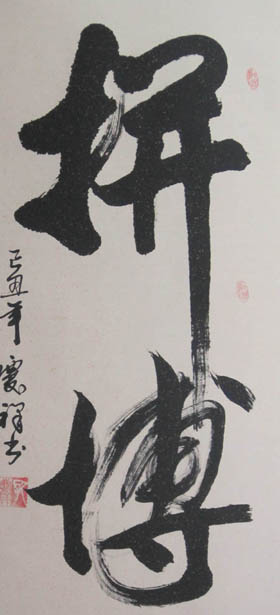 拼搏
己丑年 祥书